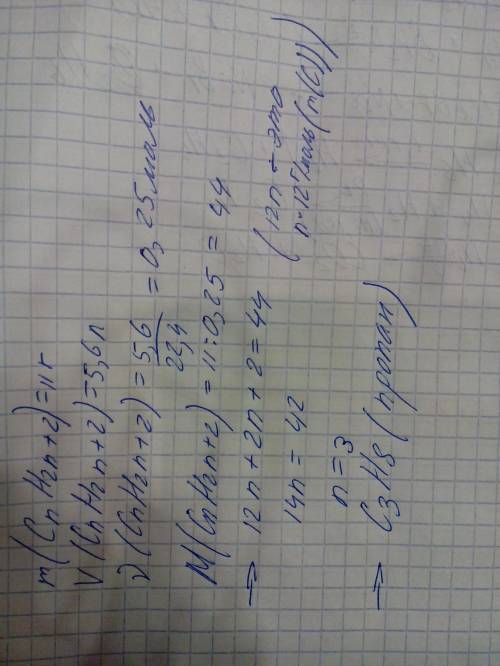 m(CnH2n+2)=11г
V(CnH2n+2)=5,6л
ν(CnH2n+2)=5,6/22,4=0,25моль
M(CnH2n+2)=11:0,25=44
⇒ 12n+2n+2=44 (12n - это n·12г/моль(m(C)))
14n=42
n=3
⇒ C3H8 (пропан)